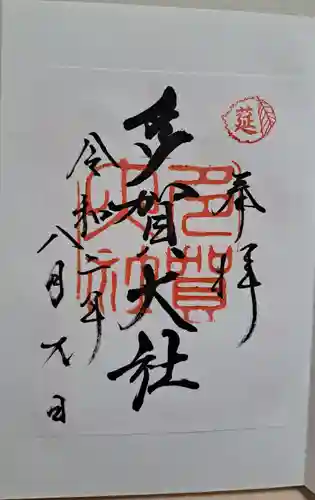 奉拝
多賀大社
令和二年
八月九日
莚
多賀大社